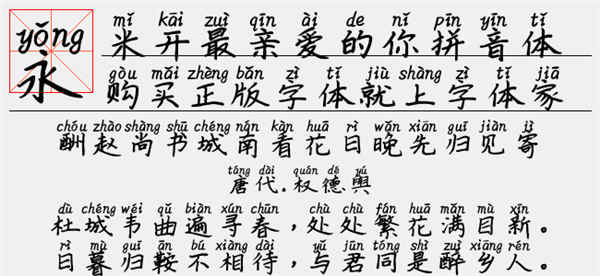 yǒng
永
mǐ kāi zuì qīn ài de nǐ pīn yīn tǐ
米开最亲爱的你拼音体
gòu mǎi zhèng bǎn zì tǐ jiù shàng zì tǐ jiā
购买正版字体就上字体家
chóu zhào shàng shū chéng nán kàn huā rì wǎn xiān guī jiàn jì
酬赵尚书城南看花日晚先归见寄
táng dài quán dé yú
唐代.权德舆
dù chéng wéi qǔ biàn xún chūn chù chù fán huā mǎn mù xīn
杜城韦曲遍寻春，处处繁花满目新。
rì mù guī ān bú xiàng dài yǔ jūn tóng shì zuì xiāng rén
日暮归鞍不相待，与君同是醉乡人。